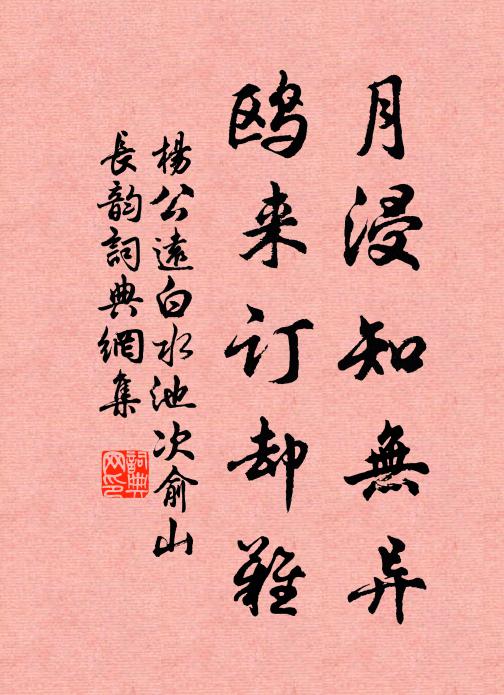 月浸知無异
鸥来订却難
楊公遠白水池次俞山
長韵詞典網集
詞典网印